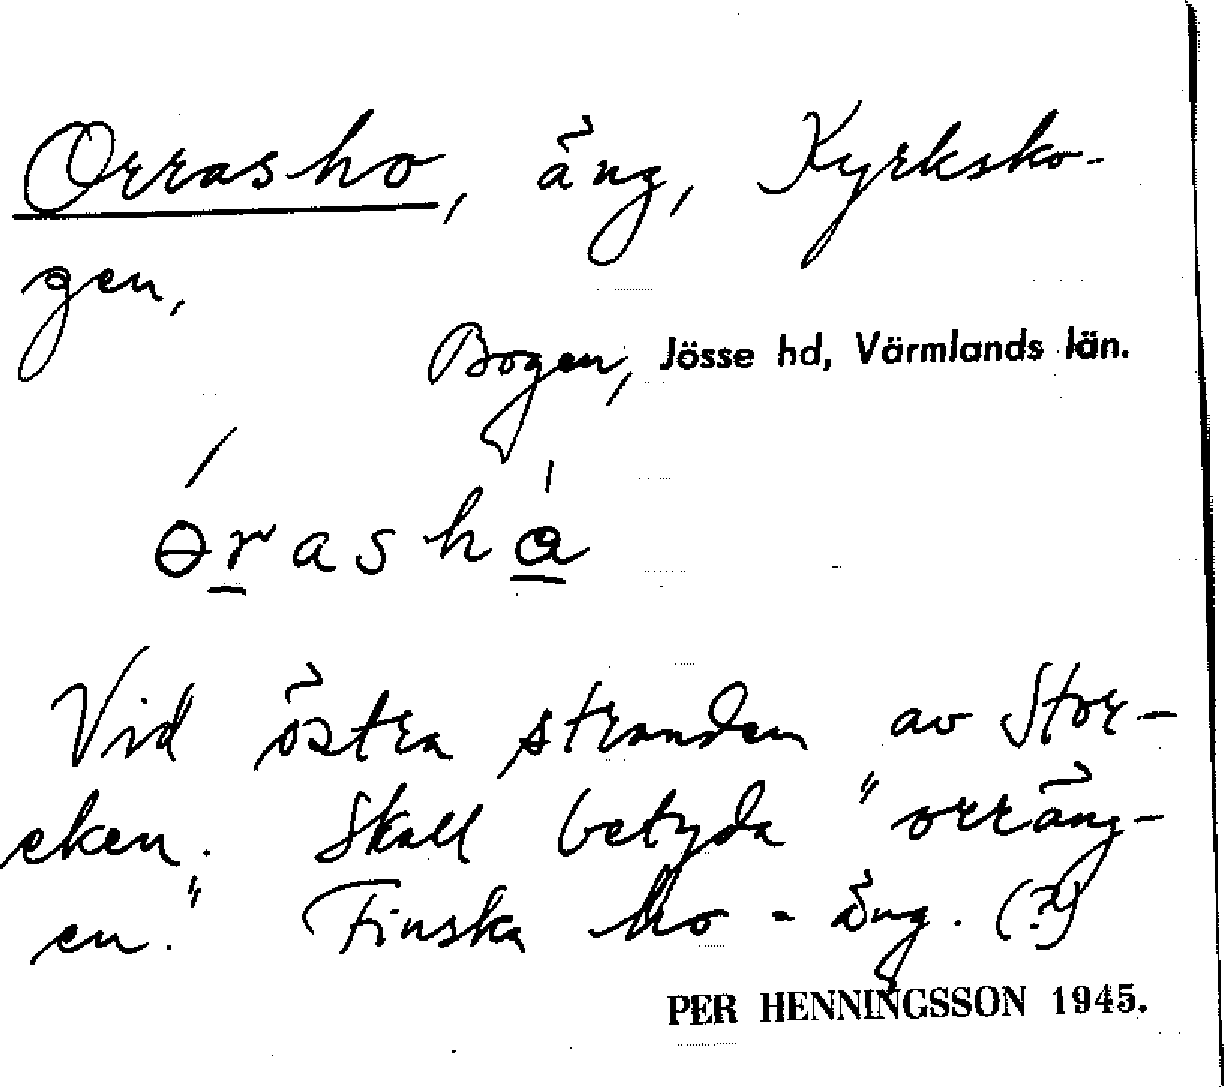 Orrasho, äng, Kyrksko-
gen,
Bogen, Jösse hd, Värmlands län.
ɵ́rashá
Vid östra stranden av Stor-
eken. Skall betyda "orräng-
en." Finska ho = äng. (?)
PER HENNINGSSON 1945.